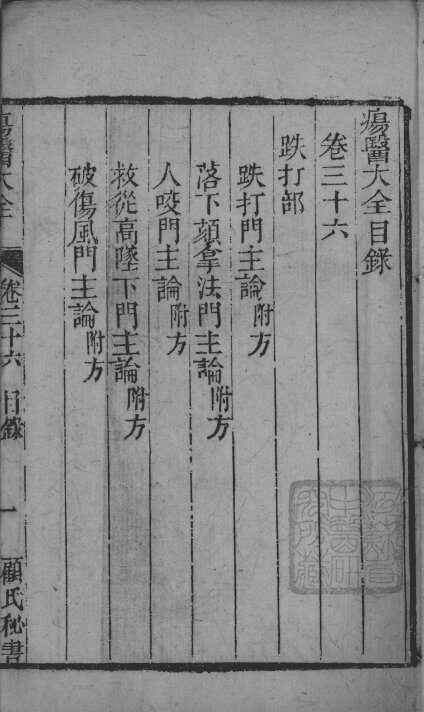 瘍醫大全目錄
卷三十六
跌打部
跌打門主論附方
落下頦拿法門主論附方
人咬門主論附方
救從高墜下門主論附方
破傷風門主論附方
瘍醫大全 卷三十六 目錄 一 顧氏秘書